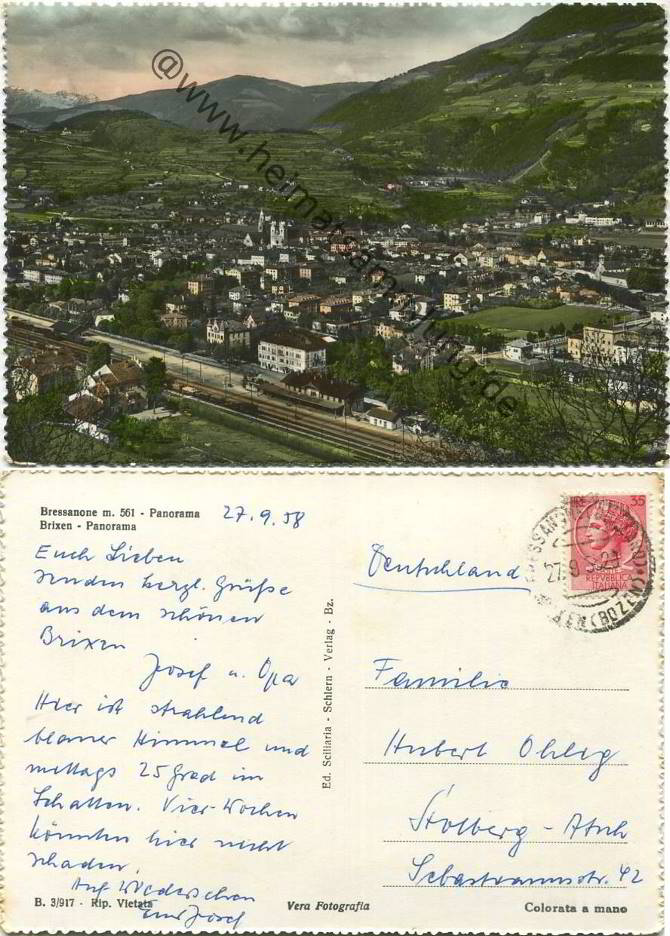 @www.heimatsammlung.de
Bressanone m. 561 - Panorama
Brixen - Panorama
27.9.58
Euch Lieben
senden herzl. Grüße
aus dem schönen
Brixen
Josef u. Opa
Hier ist strahlend
blauer Himmel und
mittags 25 Grad im
Schatten. Vier Wochen
könnten hier nicht
schaden.
Auf Wiedersehen
Euer Josef
B. 3/917 - Rip. Vietata
Ed. Sciliaria - Schlern - Verlag - Bz.
Vera Fotografia
Deutschland
LIRE 35
REPVBBLICA
ITALIANA
(BOLZEN)
Familie
Hubert Ohlig
Stolberg-Atsch
Sebastianusstr. 42
Colorata a mano